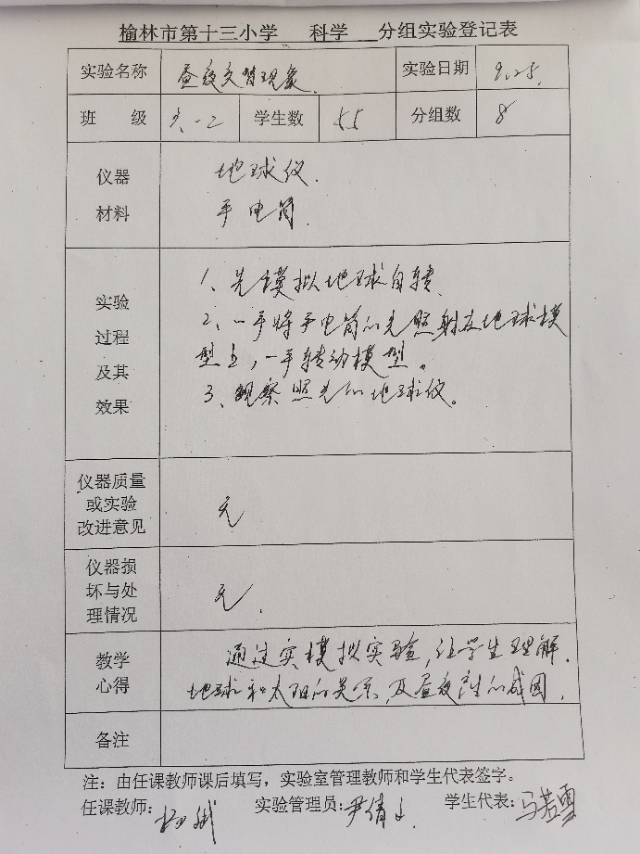 榆林市第十三小学 科学 分组实验登记表
实验名称 昼夜交替现象. 实验日期 9.25.
班 级 六.一2 学生数 55 分组数 8
仪器 地球仪.
材料 手电筒.
实验 1、先模拟地球自转.
过程 2、一手将手电筒的光照射在地球模
及其 型上,一手转动模型。
效果 3、观察照光的地球仪。
仪器质量
或实验 无
改进意见
仪器损
坏与处 无.
理情况
教学 通过实模拟实验,让学生理解.
心得 地球和太阳的关系,及昼夜产生的成因.
备注
注:由任课教师课后填写,实验室管理教师和学生代表签字。
任课教师: 实验管理员:尹倩 学生代表:马若雪